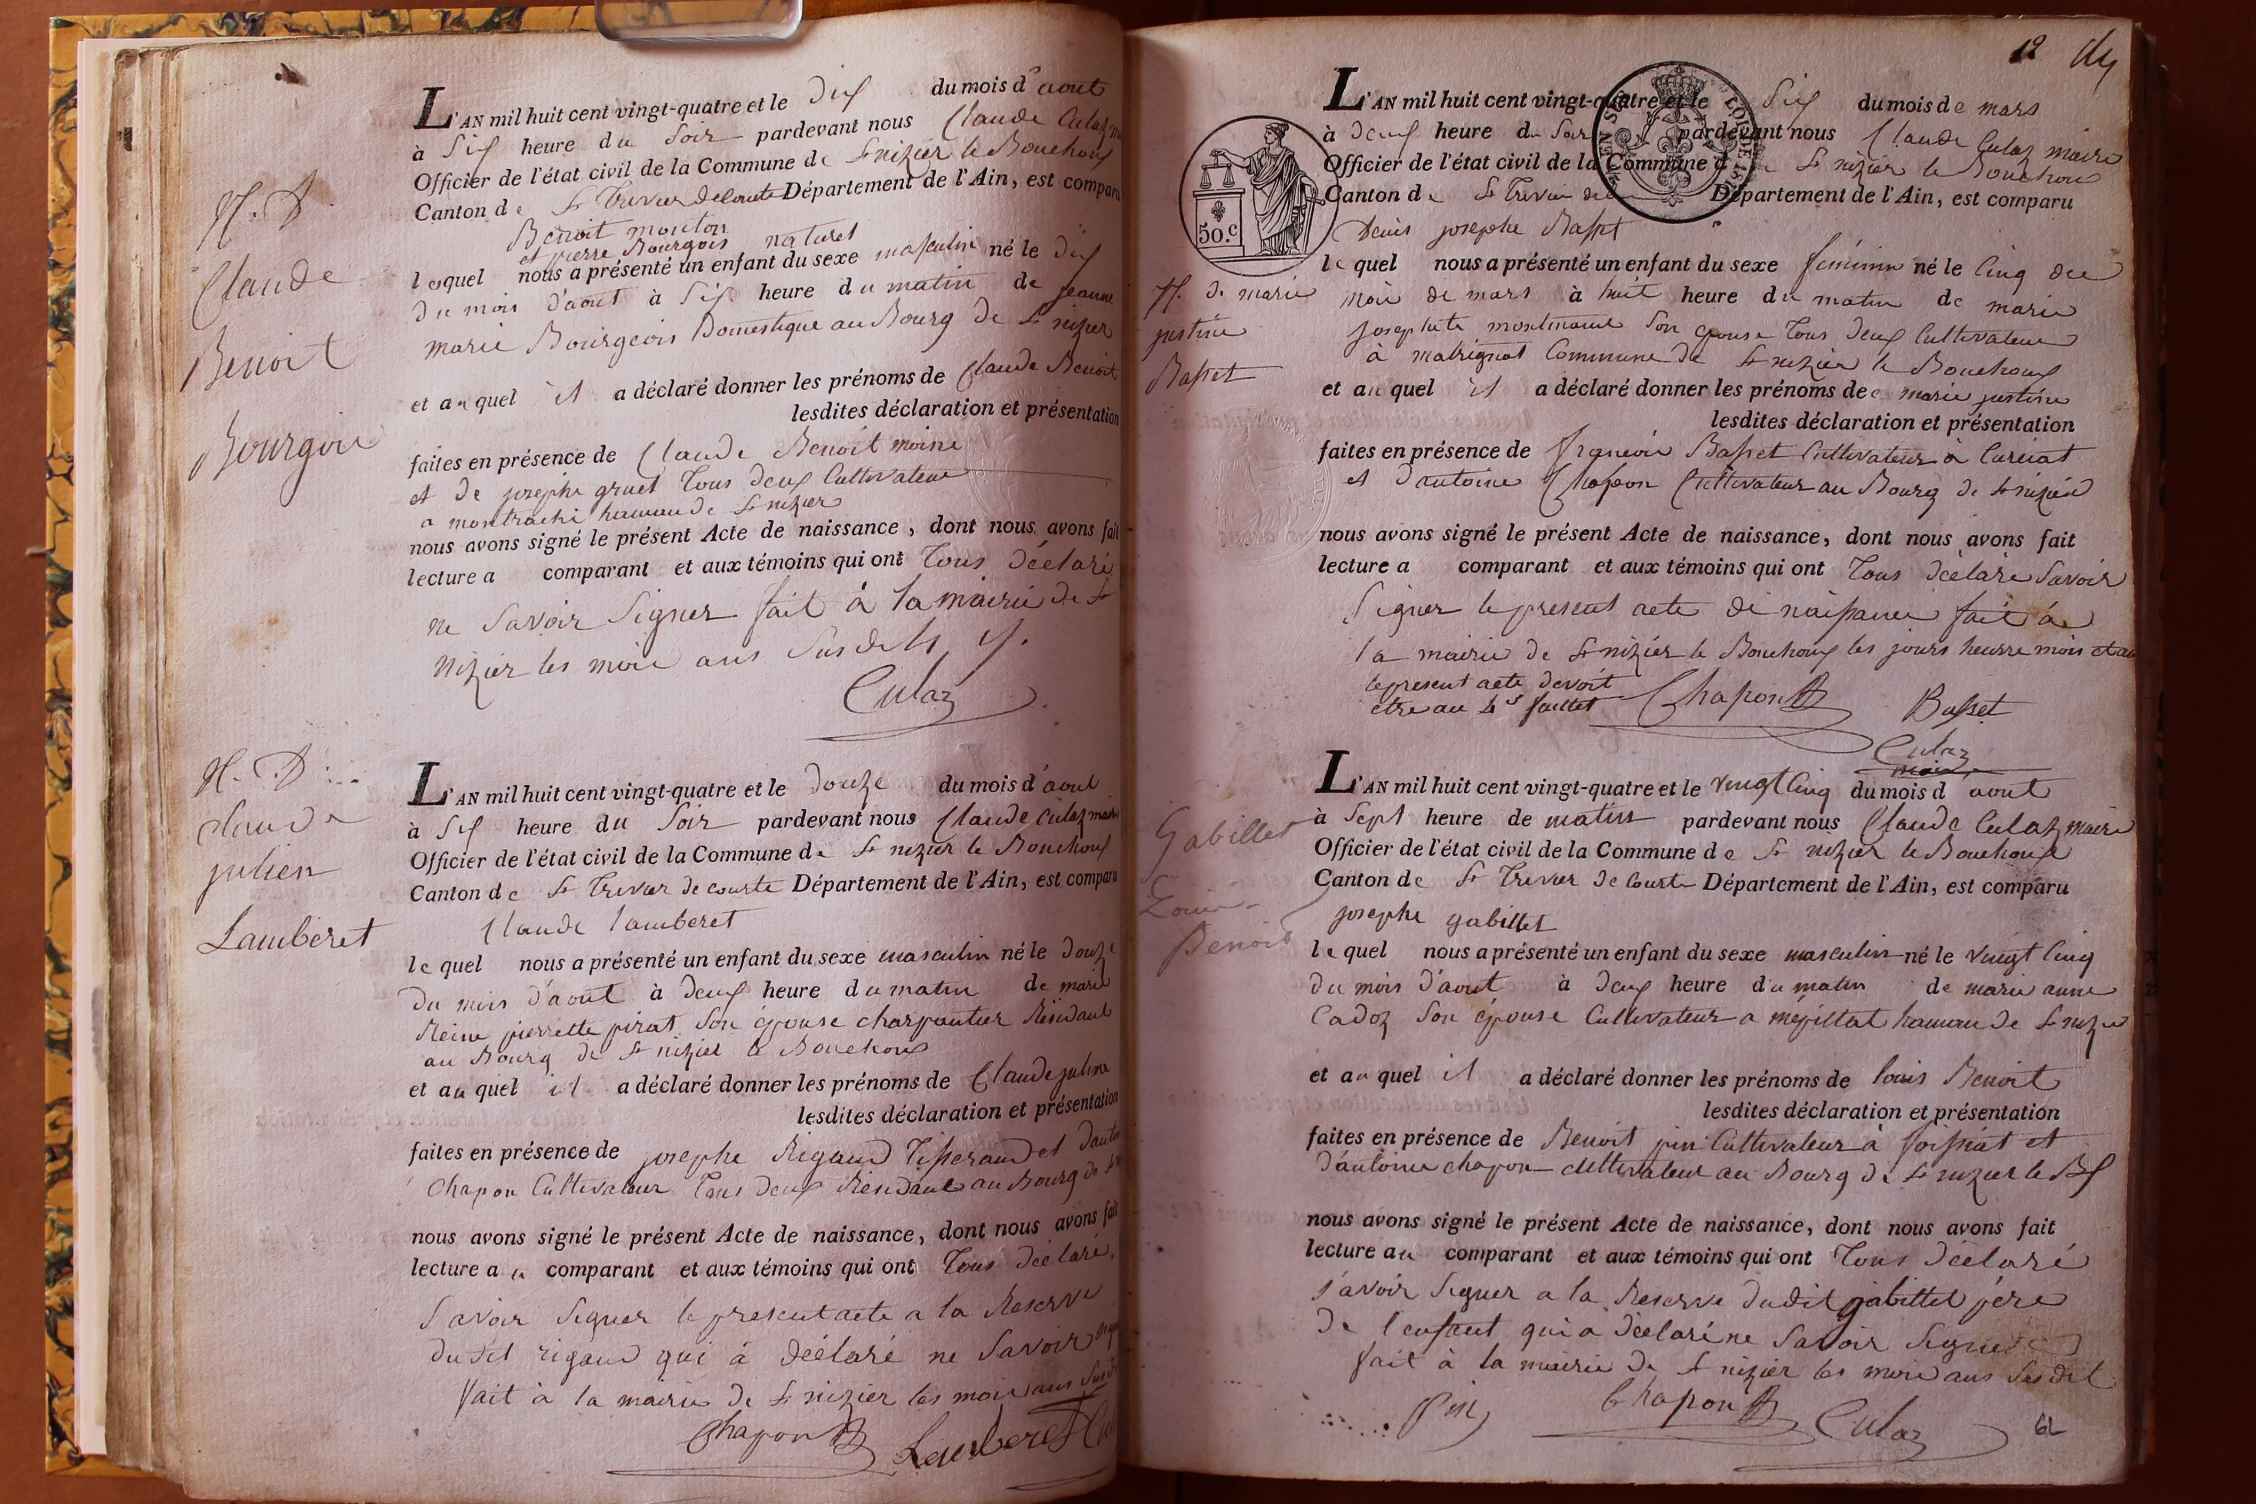 N. D.
Claude
Benoit
Bourgois
L'AN mil huit cent vingt-quatre et le dix du mois d'aout
à Six heure du Soir pardevant nous Claude Culaz
Officier de l'état civil de la Commune de St nizier le Bouchoux
Canton de St Trivier de Courte Département de l'Ain, est comparu
Benoit mouton
et pierre Bourgois naturel
lesquel nous a présenté un enfant du sexe masculin né le dix
du mois d'aout à Six heure du matin de jeanne
marie Bourgeois Domestique au Bourg de St nizier
et au quel il a déclaré donner les prénoms de Claude Benoit
lesdites déclaration et présentation
faites en présence de Claude Benoit moine
et de josephe gruet Tous deux Cultivateur
a montrachi hamau de St nizier
nous avons signé le présent Acte de naissance, dont nous avons fait
lecture a comparant et aux témoins qui ont Tous déclaré
ne Savoir Signer fait à la mairie de St
nizier les mois ans Susdits
Culaz
N. D.
claude
julien
Lamberet
L'AN mil huit cent vingt-quatre et le douze du mois d'aout
à Six heure du Soir pardevant nous Claude Culaz maire
Officier de l'état civil de la Commune de St nizier le Bouchoux
Canton de St Trivier de courte Département de l'Ain, est comparu
Claude lamberet
le quel nous a présenté un enfant du sexe masculin né le Douze
du mois d'aout à deux heure du matin de marie
Reine pierrette pirat Son épouse charpentier Résidant
au Bourg de St nizier le Bouchoux
et au quel il a déclaré donner les prénoms de Claude julien
lesdites déclaration et présentation
faites en présence de josephe Rigaud Tisserand et d'antoine
Chapon Cultivateur Tous deux Résidant au Bourg de St
nous avons signé le présent Acte de naissance, dont nous avons fait
lecture au comparant et aux témoins qui ont Tous déclaré
Savoir Signer le present acte a la Reserve
dudit rigaud qui à déclaré ne Savoir
fait à la mairie de St nizier les mois ans Susdit
Chapon Lamberet
12
L'AN mil huit cent vingt-quatre et le Six du mois de mars
à deux heure du Soir pardevant nous Claude Culaz maire
Officier de l'état civil de la Commune de St nizier le Bouchoux
Canton de St Trivier de Département de l'Ain, est comparu
50.C
Denis josephe Basset
le quel nous a présenté un enfant du sexe féminin né le Cinq du
N. D. marie
justine
Basset
mois de mars à huit heure du matin de marie
josephete Son épouse Tous deux Cultivateur
à matrignat Commune de St nizier le Bouchoux
et au quel il a déclaré donner les prénoms de marie justine
lesdites déclaration et présentation
faites en présence de françois Basset Cultivateur à Curciat
et d'antoine Chapon Cultivateur au Bourg de St nizier
nous avons signé le présent Acte de naissance, dont nous avons fait
lecture a comparant et aux témoins qui ont Tous déclaré Savoir
Signer le present acte de naissance fait à
la mairie de St nizier le Bouchoux les jours heurre mois et an
le present acte devoit
etre au 4e fuillet
Chapon Basset
Culaz
maire
Gabillet
Louis
Benoit
L'AN mil huit cent vingt-quatre et le vingt Cinq du mois d aout
à Sept heure de matin pardevant nous Claude Culaz maire
Officier de l'état civil de la Commune de St nizier le Bouchoux
Canton de St Trivier de Courte Département de l'Ain, est comparu
josephe gabillet
le quel nous a présenté un enfant du sexe masculin né le vingt Cinq
du mois d'aout à deux heure du matin de marie anne
Cadoz Son épouse Cultivateur a mépillat hamau de St nizier
et au quel il a déclaré donner les prénoms de louis Benoit
lesdites déclaration et présentation
faites en présence de Benoit pin Cultivateur à foissiat et
d'antoine chapon cultivateur au Bourg de St nizier le Bx
nous avons signé le présent Acte de naissance, dont nous avons fait
lecture au comparant et aux témoins qui ont Tous déclaré
Savoir Signer a la Reserve dudit gabillet père
de l'enfant qui a déclaré ne Savoir Signer
fait à la mairie de St nizier les mois ans Susdit
Pin Chapon Culaz
62